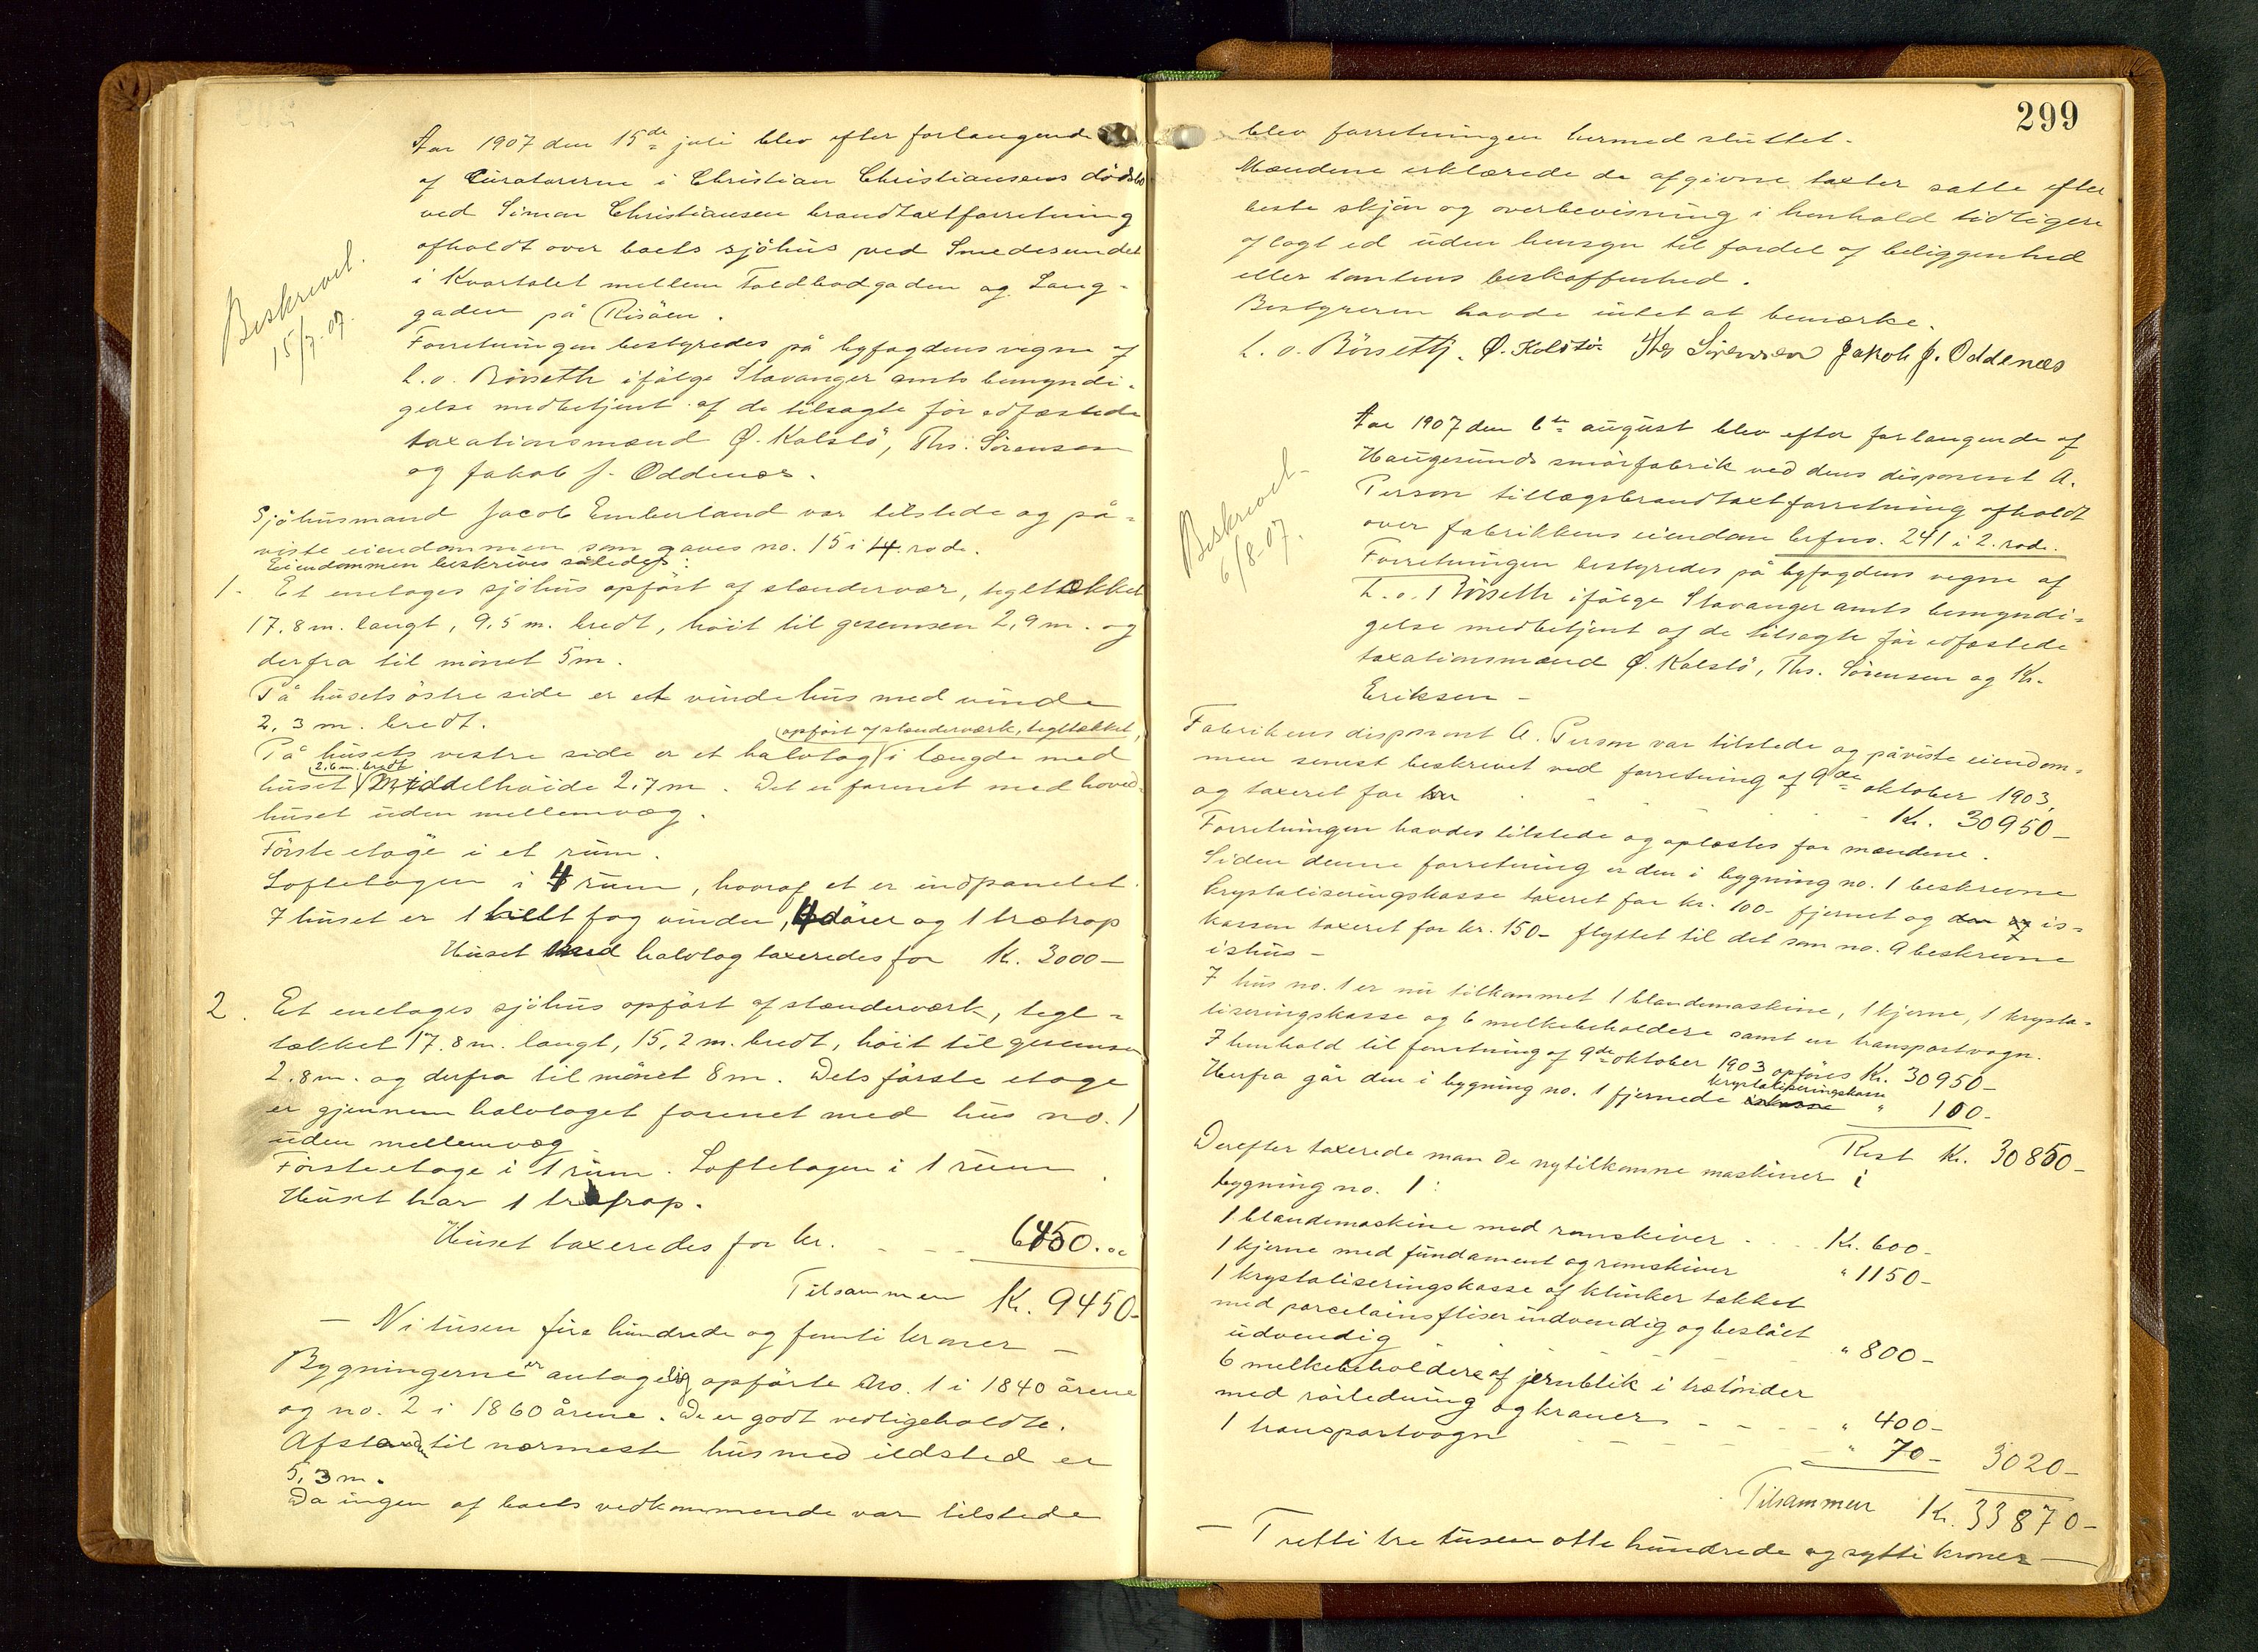 Aar 1907 den 15de juli blev efter forlangende
af Curatorerne i Christian Christiansens dødsbo
ved Simon Christiansen brandtaxtforretning
afholdt over boets sjöhus ved Smedesundet
i Kvartalet mellem Toldbodgaden og Lang-
gaden på Risöen.
Beskrevet.
15/7-07.
Forretningen bestyredes på byfogdens vegne af
L. o. Börseth ifölge Stavanger amts bemyndi-
gelse medbetjent af de tilsagte för edfæstede
taxationsmænd Ø. Kolstö, Ths. Sörensen
og Jakob J. Oddenæs.
Sjöhusmand Jacob Emberland var tilstede og på-
viste eiendommen som gaves no. 15 i 4. rode.
Eiendommen beskrives således:
1. Et enetages sjöhus opfört af stændervær, tegltækket
17.8 m. langt, 9,5 m. bredt, höit til gesemsen 2,9 m. og
derfra til mönet 5 m.
På husets östre side er et vindehus med vinde
2,3 m. bredt.
(opfört af stænderværk, tegltækket,
På husets vestre side er et halvtag i længde med
2.6 m. bredt
huset Middelhöide 2,7 m. Det er forenet med hoved-
huset uden mellemvæg.
Förste etage i et rum.
Loftetagen i 4 rum, hvoraf et er indpanelet.
I huset er 1 helt fag vinduer, 4 dörer og 1 trætrap
Huset med halvtag taxeredes for Kr. 3000-
2. Et enetages sjöhus opfört af stænderværk, tegl-
tækket 17.8 m. langt, 15,2 m. bredt, höit til gesemsen
2.8 m. og derfra til mönet 8 m. Dets förste etage
er gjennem halvtaget forenet med hus no. 1
uden mellemvæg
Förste etage i 1 rum. Loftetagen i 1 rum
Huset har 1 trætrap.
Huset taxeredes for kr. - - - 6450.00
Tilsammen Kr. 9450-
- Nitusen fire hundrede og femti kroner -
Bygningerne er antagelig opförte No. 1 i 1840 årene
og no. 2 i 1860 årene. De er godt vedligeholdte.
Afstanden til nærmeste hus med ildsted er
5,3 m.
Da ingen af boets vedkommende var tilstede
299
blev forretningen hermed sluttet.
Mændene erklærede de afgivne taxter satte efter
beste skjön og overbevisning i henhold tidligere
aflagt ed uden hensyn til fordel af beliggenhed
eller tomtens beskaffenhed.
Bestyreren havde intet at bemærke.
L. o. Börseth. Ø. Kolstö Ths Sörensen Jakob J. Oddenæs
Aar 1907 den 6te august blev efter forlangende af
Haugesunds smörfabrik ved dens disponent A.
Person tillægsbrandtaxtforretning afholdt
over fabrikkens eiendom brfno. 241 i 2. rode.
Beskrevet
6/8-07.
Forretningen bestyredes på byfogdens vegne af
L. o. Börseth ifölge Stavanger amts bemyndi-
gelse medbetjent af de tilsagte för edfæstede
taxationsmænd Ø. Kolstö, Ths. Sörensen og Kr.
Eriksen -
Fabrikens disponent A. Person var tilstede og påviste eiendom-
men senest beskrevet ved forretning af 9de oktober 1903,
og taxeret for kr - - - Kr. 30950-
Forretningen havdes tilstede og oplæstes for mændene.
Siden denne forretning er den i bygning no. 1 beskrevne
krystaliseringskasse taxeret for kr. 100- fjernet og den af is-
kassen taxeret for kr. 150- flyttet til det som no. 9 beskrevne
ishus -
I hus no. 1 er nu tilkommet 1 blandemaskine, 1 kjerne, 1 krysta-
liseringskasse og 6 melkebeholdere samt en transportvogn.
I henhold til forretning af 9de oktober 1903 opföres Kr. 30950-
krystaliseringskasse
Herfra går den i bygning no. 1 fjernede iskasse " 100-
Rest Kr. 30850-
Derefter taxerede man de nytilkomne maskiner i
bygning no. 1:
1 blandemaskine med remskiver - - - Kr. 600-
1 kjerne med fundament og remskiver " 1150-
1 krystaliseringskasse af klinker tækket
med porcelainsfliser indvendig og beslået
udvendig " 800-
6 melkebeholdere af jernblik i trætönder
med rörledning og kraner - - - " 400-
1 transportvogn - - - " 70- 3020-
Tilsammen Kr. 33870-
- Tretti tre tusen otte hundrede og sytti kroner -